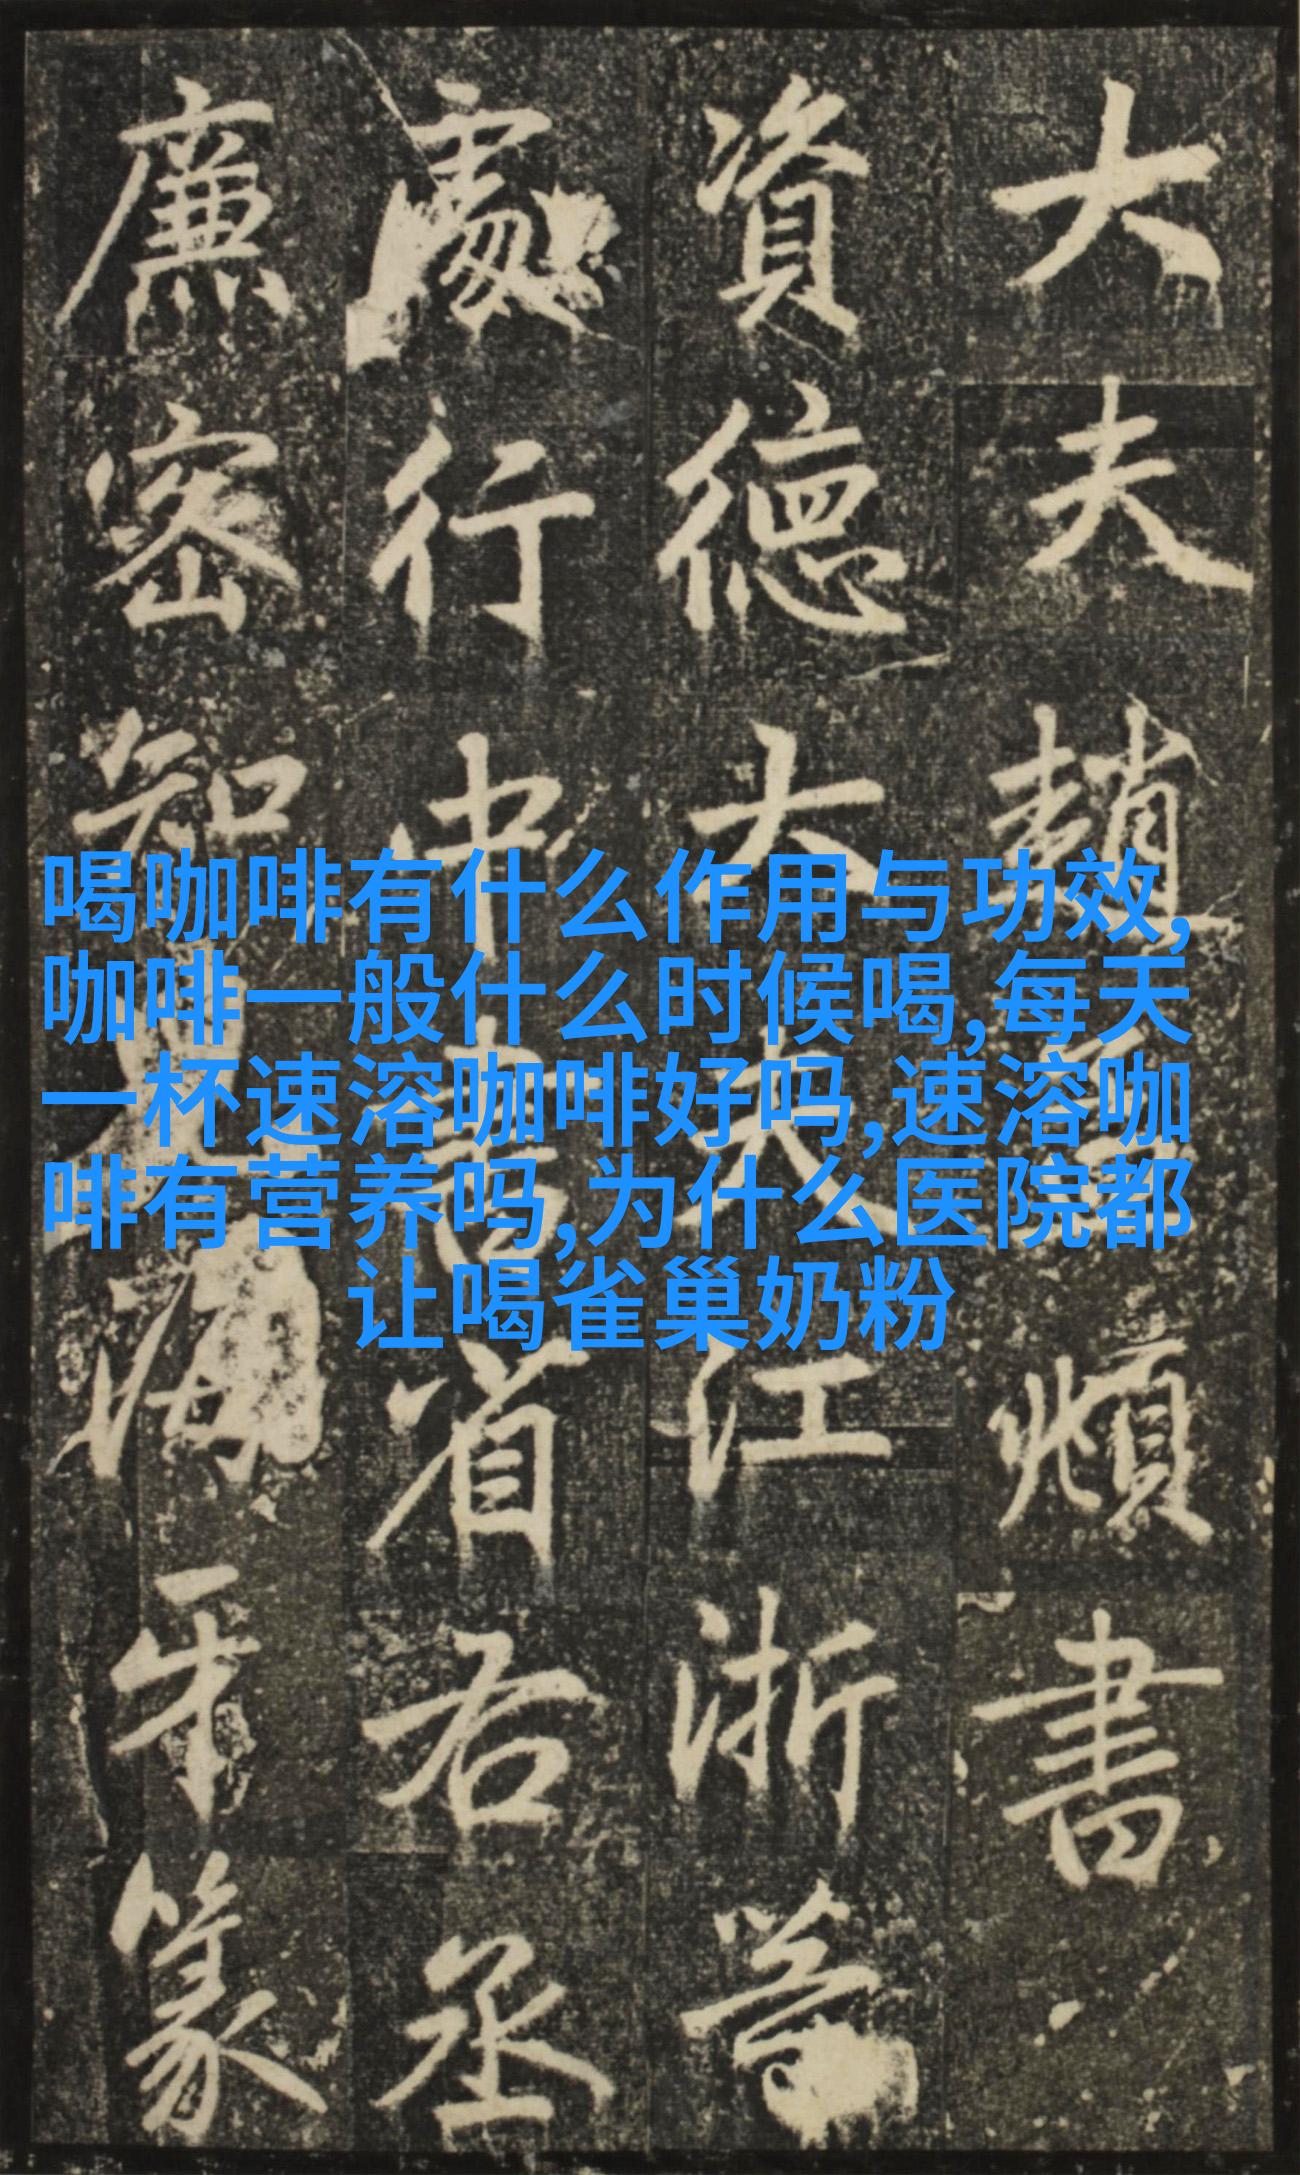 喝咖啡有什么作用与功效,
咖啡一般什么时候喝,每天
一杯速溶咖啡好吗,速溶咖
啡有营养吗,为什么医院都
让喝雀巢奶粉
大夫趙頫書
資德大夫江浙等
處行中書省右丞
廉密知海牙篆